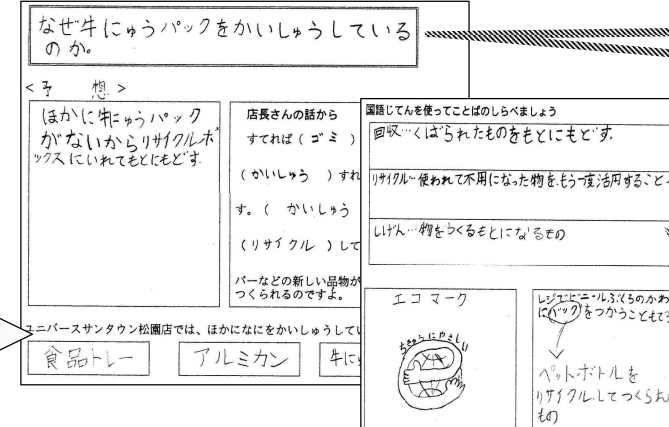 なぜ牛にゅうパックをかいしゅうしている
のか。
<予 想>
ほかに牛にゅうパック
がないからリサイクルボ
ックスにいれてもとにもどす。
店長さんの話から
すてれば(ゴミ)
(かいしゅう)すれ
す。(かいしゅう
(リサイクル)して
パーなどの新しい品物が
つくられるのですよ。
ユニバースサンタウン松園店では、ほかになにをかいしゅうしてい
食品トレー
アルミカン
牛に
国語じてんを使ってことばのしらべましょう
回収…くばられたものをもとにもどす。
リサイクル…使われて不用になった物を、もう一度活用すること。
しげん…物をつくるもとになるもの
エコマーク
ちきゅうにやさしい
レジでビニールぶくろのかわ
にバックをつかうこともで
ペットボトルを
リサイクルしてつくられ
もの